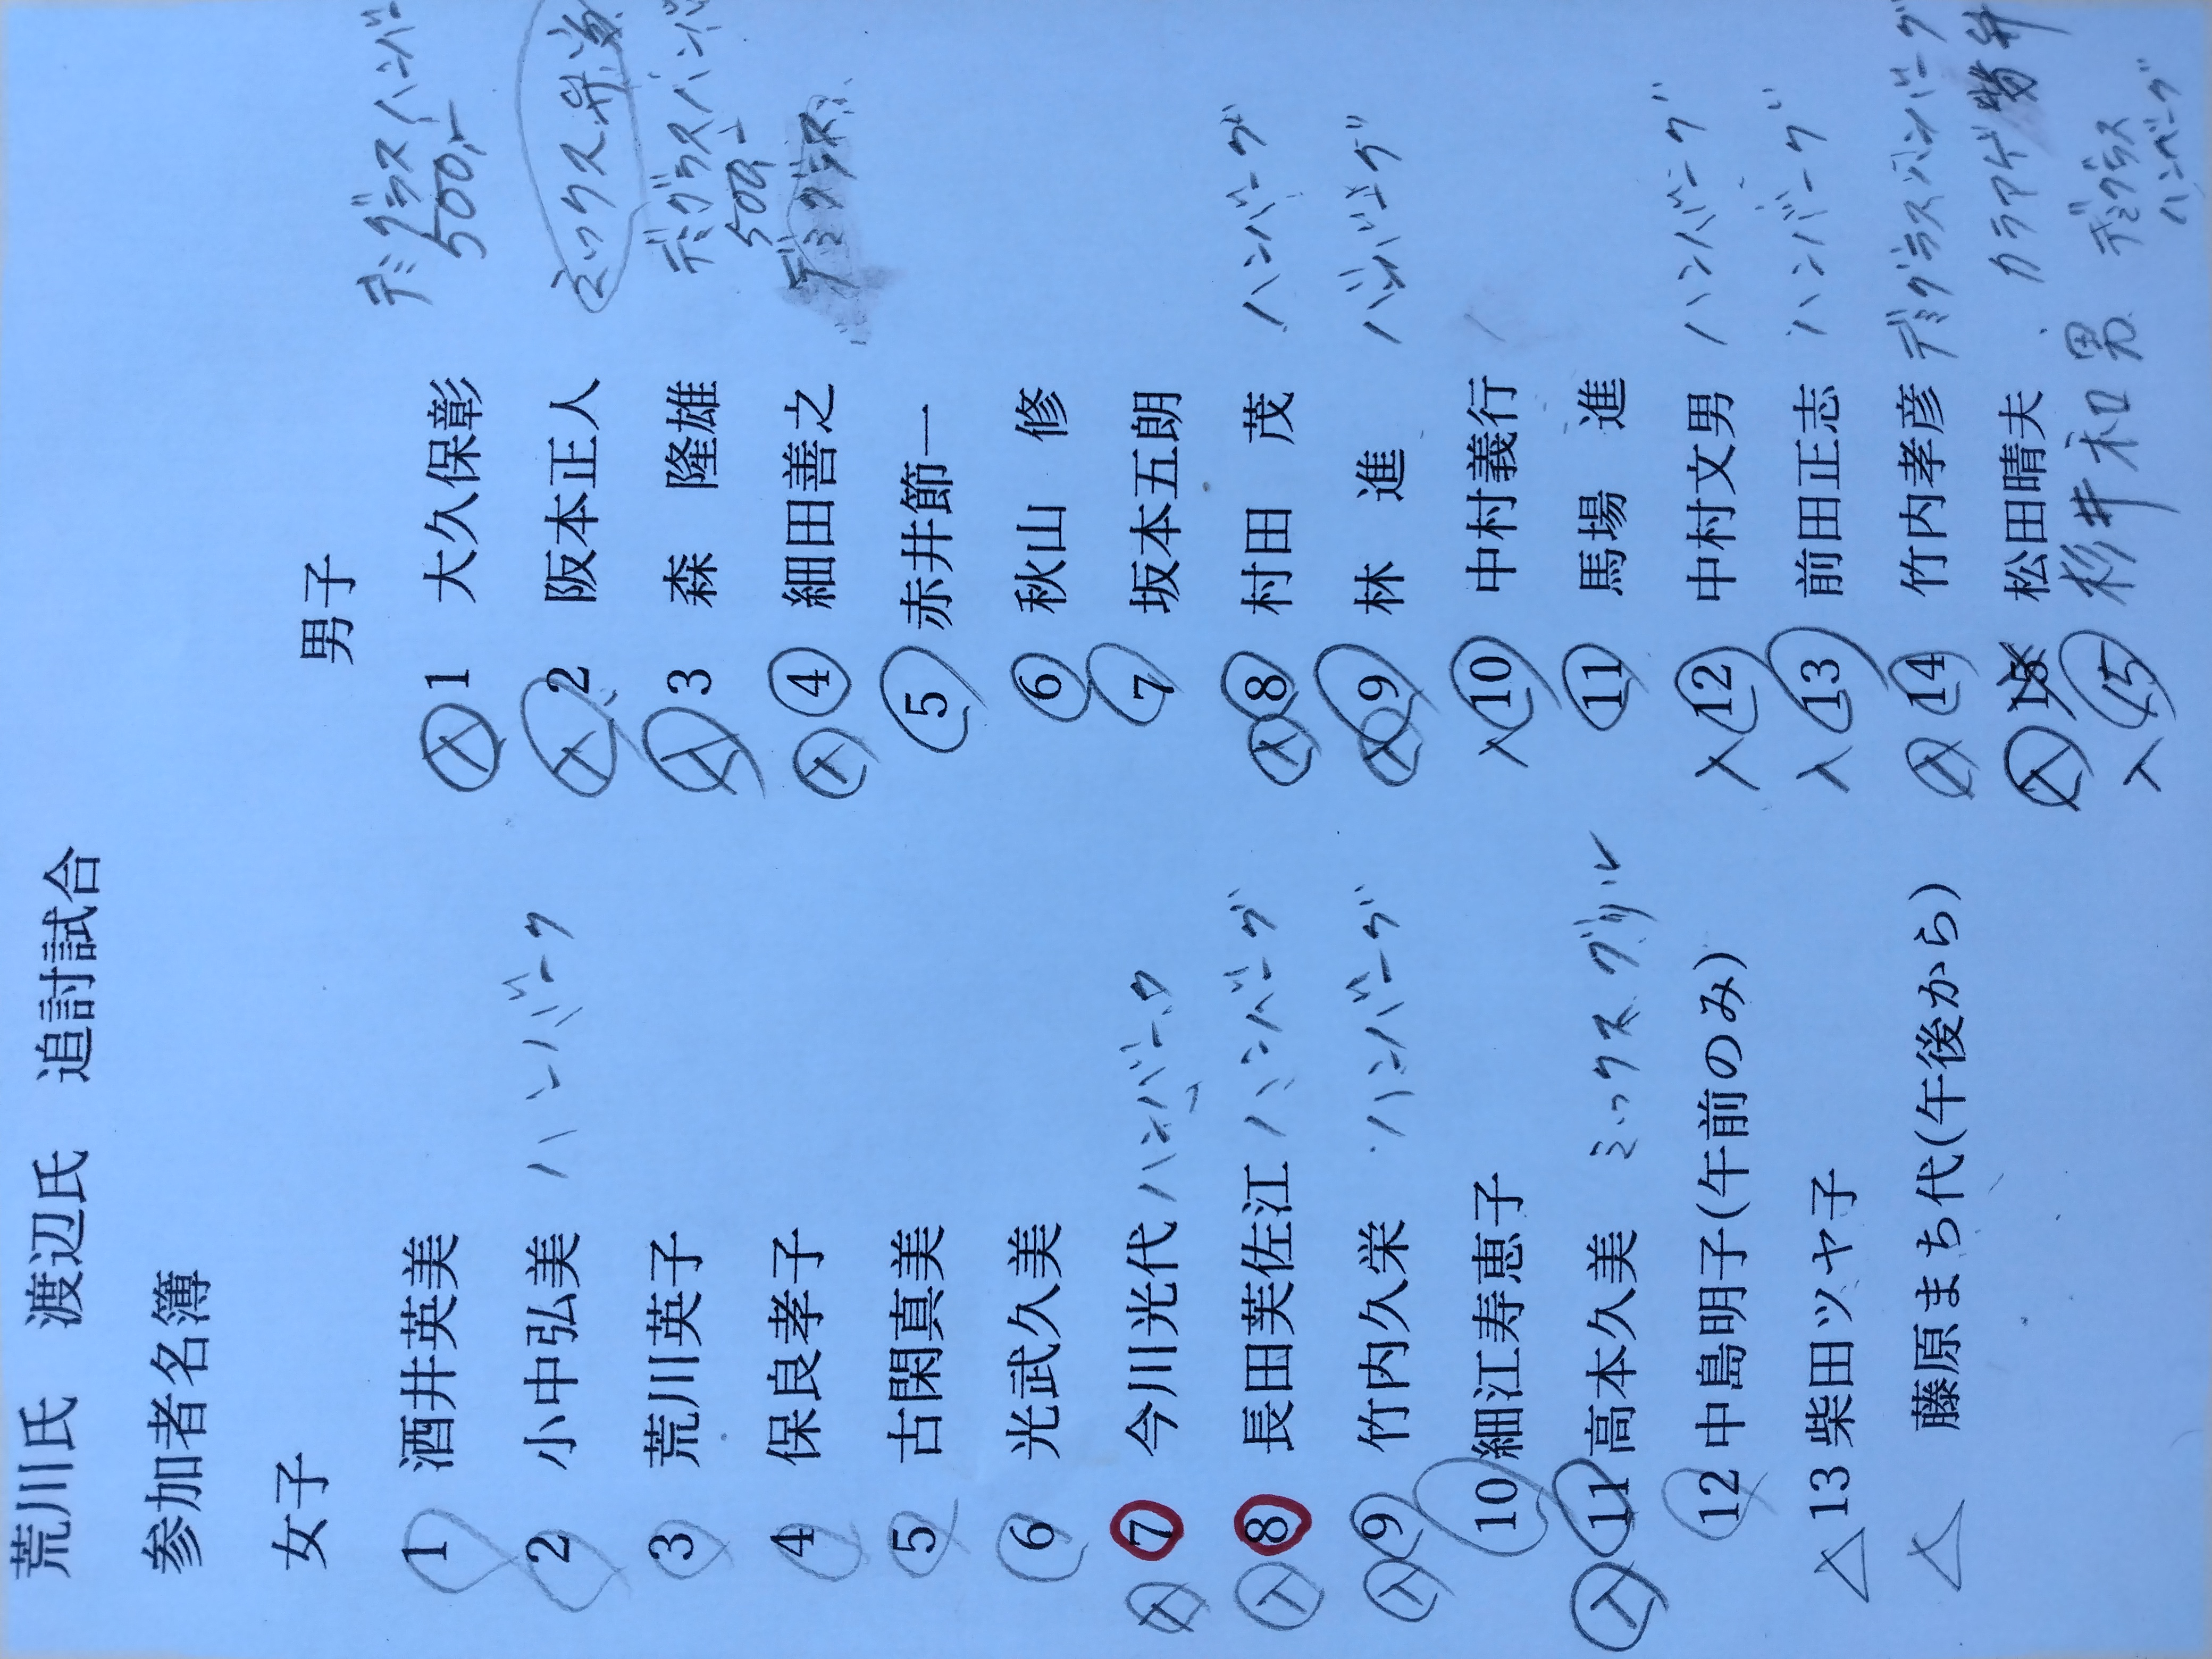 荒川氏 渡辺氏 追討試合
参加者名簿
女子 男子
1 酒井英美 入 1 大久保彰 デミグラスハンバ 500,-
2 小中弘美 ハンバーク 入 2 阪本正人 ミックス弁当
3 荒川英子 入 3 森 隆雄 デミグラスハンバ 500,-
4 保良孝子 入 4 細田善之 デミグラス
5 古閑真美 5 赤井節一
6 光武久美 6 秋山 修
入 7 今川光代 ハンバーク 7 坂本五朗
入 8 長田芙佐江 ハンバーグ 入 8 村田 茂 ハンバーグ
入 9 竹内久栄 ハンバーグ 入 9 林 進 ハンバーグ
10 細江寿恵子 入 10 中村義行
入 11 高本久美 ミックスグリル 11 馬場 進
12 中島明子(午前のみ) 入 12 中村文男 ハンバーグ
△ 13 柴田ツヤ子 入 13 前田正志 ハンバーグ
△ 藤原まち代(午後から) 入 14 竹内孝彦 デミグラスハンバーグ
入 15 松田晴夫 カラアゲ弁
入 15 杉井和男 デミグラス ハンバーグ